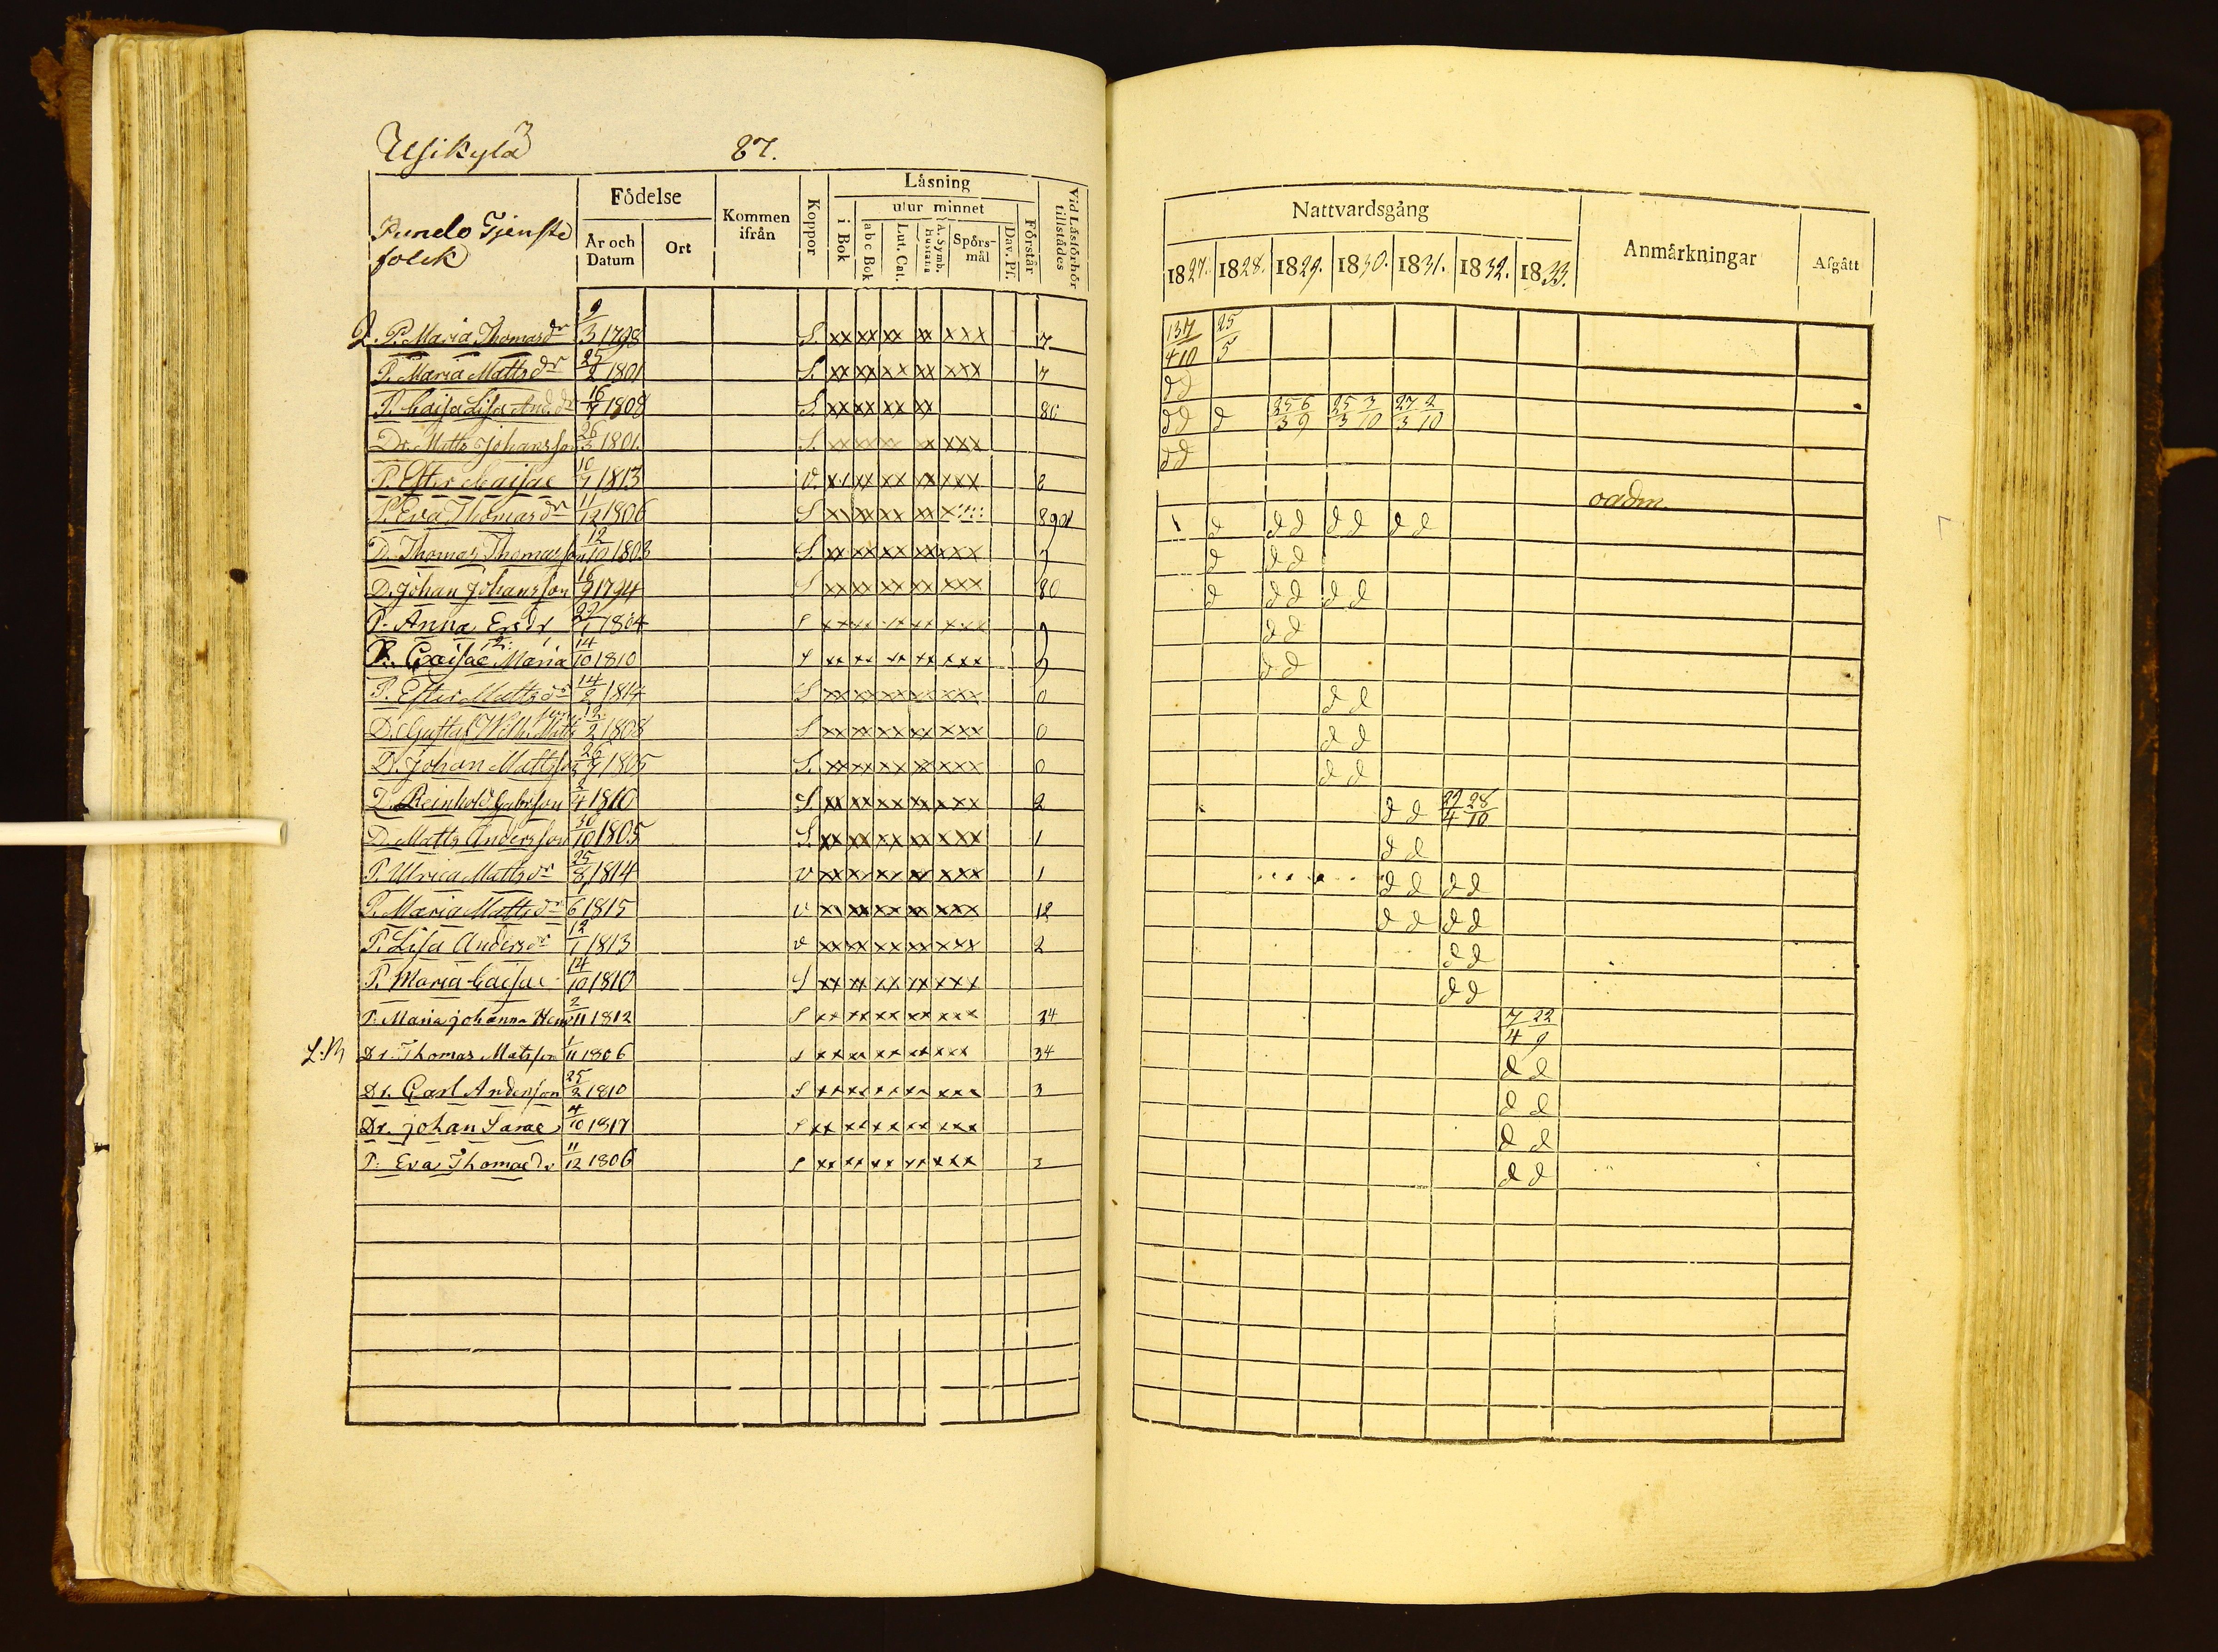 Usikylä 87.
Födelse Kommen ifrån Koppor Läsning Vid Läsförhör tillstädes
Punelo Tjenste folck År och Datum Ort i Bok utur minnet abc Bok Lut. Cat. A. Symb. Hustafla Spörs-mål Dav. Ps. Förstår
Nattvardsgång Anmärkningar Afgått
1827. 1828. 1829. 1830. 1831. 1832. 1833.
P. Maria Thomasdr 9/3 1798 S. xx xx xx xx xxx 7 25/5
P. Maria Mattsdr 25/2 1801 S. xx xx xx xx xxx 7 d d
P. Caisa Lisa And.dr 16/7 1808 S. xx xx xx xx 80 d d d 25/3 6/9 25/3 3/10 27/3 2/10
Dr. Matts Johansson 26/3 1801. S. xx xx xx xx xxx d d
P. Ester Caisae 1813 v. xx xx xx xx xxx 0 oadm.
P. Eva Thomasdr 11/12 1806 S xx xx xx xx 8901 1 d d d d d d d
D. Thomas Thomasson 12/10 1803 S xx xx xx xx xxx 9 d d d
D. Johan Johansson 16/9 1794 S xx xx xx xx xxx 80 d d d d d
P. Anna Ersdr 1804 S xx xx xx xx xxx 9 d d
P. Caisae Maria 14/10 1810 S xx xx xx xx xxx 9 d d
P. Ester Mattsdr 14/2 1814 S xx xx xx xx xxx 0 d d
D. Gustaf Wilh. Mattsson 12/2 1808 S xx xx xx xx xxx 0 d d
D. Johan Mattsson 26/7 1805 S. xx xx xx xx xxx 0 d d
D. Reinhold Gabrsson 2/4 1810 S xx xx xx xx xxx 2 d d 22/4 28/10
D. Matts Andersson 30/10 1805 S. xx xx xx xx xxx 1 d d
P. Ulrica Mattsdr 25/8 1814 v xx xx xx xx xxx 1 d d d d
P. Maria Mattsdr 6 1815 v xx xx xx xx xxx 12 d d d d
P. Lisa Andersdr 12/1 1813 v xx xx xx xx xxx 2 d d
P. Maria Caisae 14/10 1810 S xx xx xx xx xxx d d
P. Maria Johanna Hen 2/11 1812 S xx xx xx xx xxx 34 7/4 22/9
Dr. Thomas Matsson 1/11 1806 S xx xx xx xx xxx 34 d d
Dr. Carl Andersson 25/2 1810 S xx xx xx xx xxx 3 d d
Dr. Johan Sarae 4/10 1817 S xx xx xx xx xxx d d
P. Eva Thomaedr 11/12 1806 S xx xx xx xx xxx 3 d d